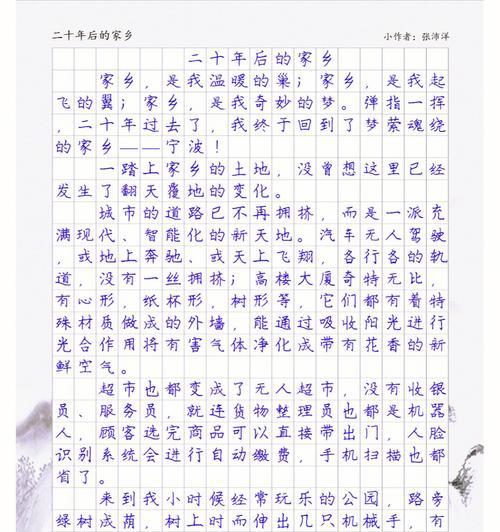 二十年后的家乡 小作者：张沛洋
二十年后的家乡
家乡，是我温暖的巢；家乡，是我起
飞的翼；家乡，是我奇妙的梦。弹指一挥
，二十年过去了，我终于回到了梦萦魂绕
的家乡——宁波！
一踏上家乡的土地，没曾想这里已经
发生了翻天覆地的变化。
城市的道路已不再拥挤，而是一派充
满现代、智能化的新天地。汽车无人驾驶
，或地上奔驰、或天上飞翔，各行各的轨
道，没有一丝拥挤；高楼大厦奇特无比，
有心形，纸杯形，树形等，它们都有着特
殊材质做成的外墙，能通过吸收阳光进行
光合作用将有害气体净化成带有花香的新
鲜空气。
超市也都变成了无人超市，没有收银
员、服务员，就连货物整理员也都是机器
人，顾客选完商品可以直接带出门，人脸
识别系统会进行自动缴费，手机扫描也都
省了。
来到我小时候经常玩乐的公园，路旁
绿树成荫，树上时而伸出几只机械手，有